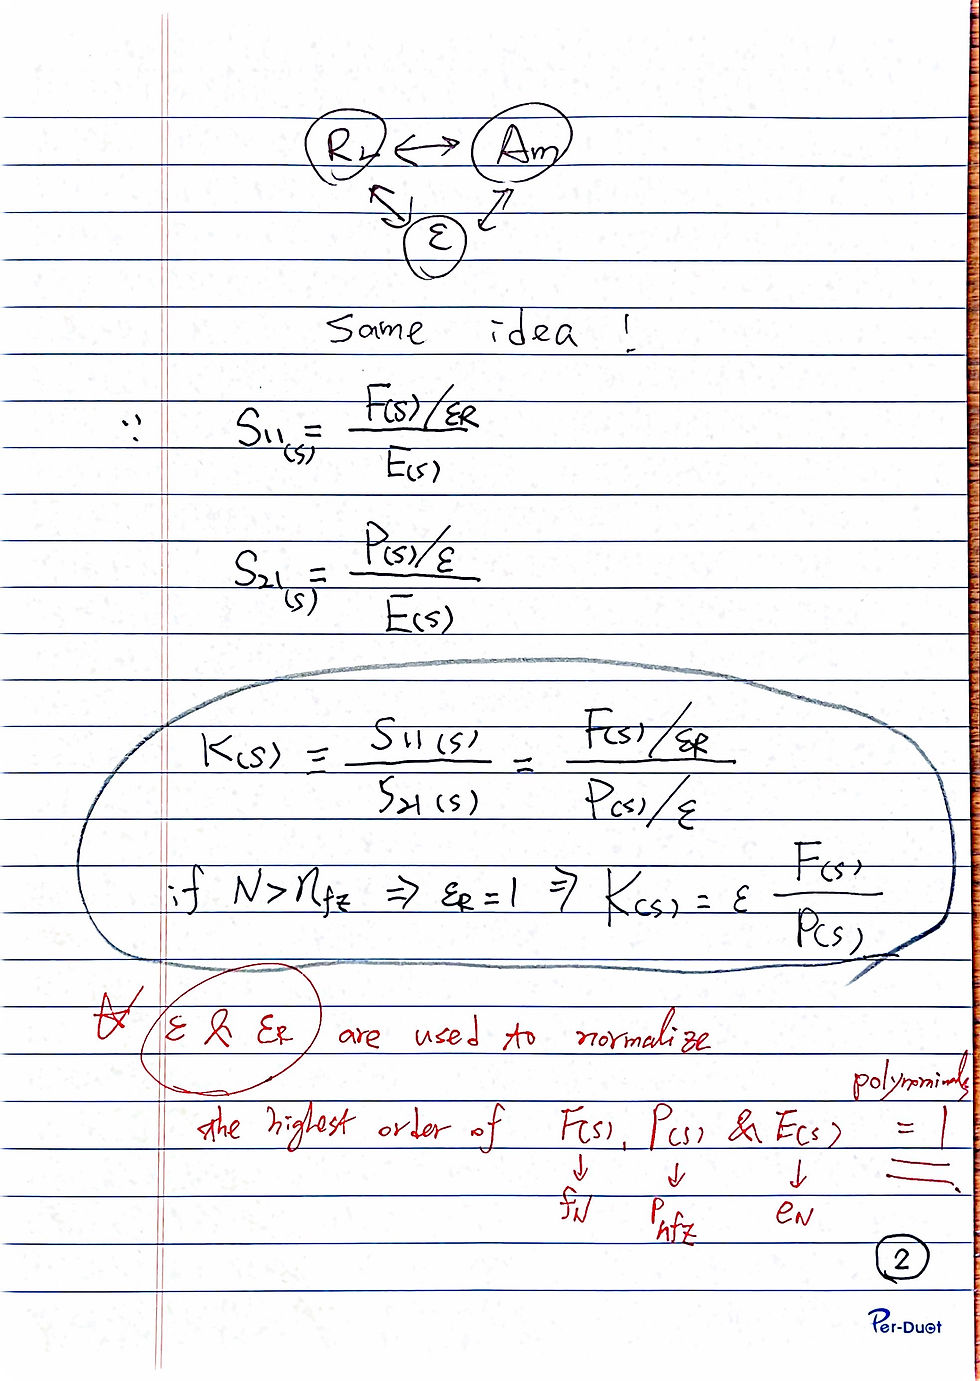 RL ↔ Am
ε
Same idea !
∵ S11(s) = F(s)/εR / E(s)
S21(s) = P(s)/ε / E(s)
K(s) = S11(s) / S21(s) = F(s)/εR / P(s)/ε
if N > nfz ⇒ εR = 1 ⇒ K(s) = ε F(s) / P(s)
☆ ε & εR are used to normalize
polynominals
the highest order of F(s), P(s) & E(s) = 1
↓ ↓ ↓
fN Pnfz eN
2
Per-Duet